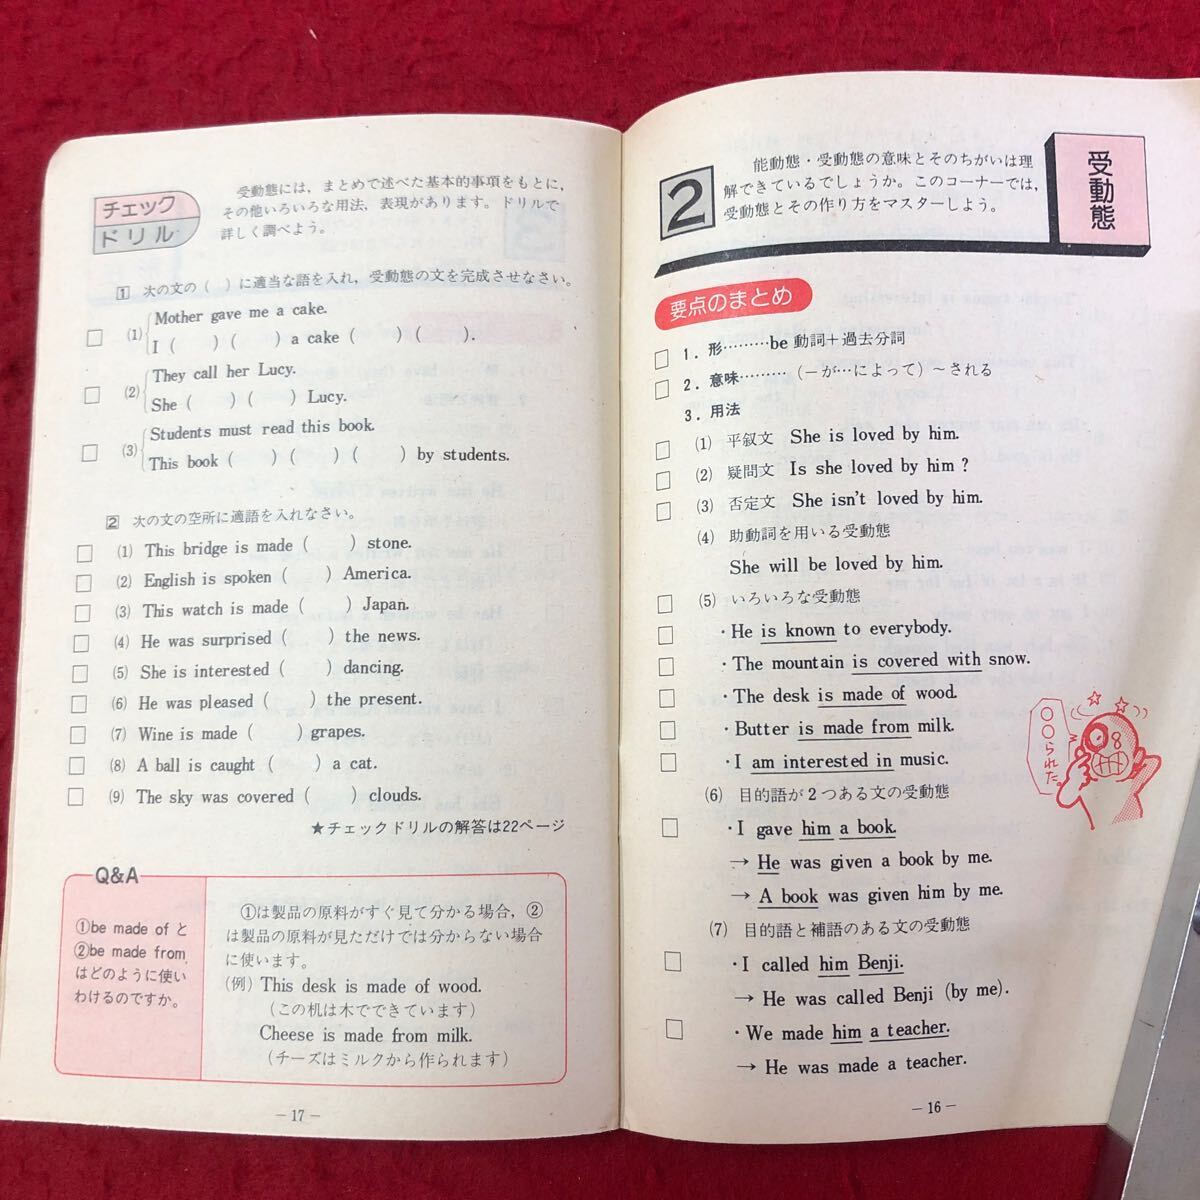 2
能動態・受動態の意味とそのちがいは理
解できているでしょうか。このコーナーでは,
受動態とその作り方をマスターしよう。
受動態
要点のまとめ
1. 形………be 動詞＋過去分詞
2. 意味………(－が…によって) ～される
3. 用法
(1) 平叙文 She is loved by him.
(2) 疑問文 Is she loved by him ?
(3) 否定文 She isn't loved by him.
(4) 助動詞を用いる受動態
She will be loved by him.
(5) いろいろな受動態
・He is known to everybody.
・The mountain is covered with snow.
・The desk is made of wood.
・Butter is made from milk.
・I am interested in music.
○○られた
(6) 目的語が2つある文の受動態
・I gave him a book.
→ He was given a book by me.
→ A book was given him by me.
(7) 目的語と補語のある文の受動態
・I called him Benji.
→ He was called Benji (by me).
・We made him a teacher.
→ He was made a teacher.
－16－
チェック
ドリル
受動態には, まとめで述べた基本的事項をもとに,
その他いろいろな用法, 表現があります。ドリルで
詳しく調べよう。
1 次の文の ( ) に適当な語を入れ, 受動態の文を完成させなさい。
(1) Mother gave me a cake.
I ( ) ( ) a cake ( ) ( ).
(2) They call her Lucy.
She ( ) ( ) Lucy.
(3) Students must read this book.
This book ( ) ( ) ( ) by students.
2 次の文の空所に適語を入れなさい。
(1) This bridge is made ( ) stone.
(2) English is spoken ( ) America.
(3) This watch is made ( ) Japan.
(4) He was surprised ( ) the news.
(5) She is interested ( ) dancing.
(6) He was pleased ( ) the present.
(7) Wine is made ( ) grapes.
(8) A ball is caught ( ) a cat.
(9) The sky was covered ( ) clouds.
★チェックドリルの解答は22ページ
Q&A
①be made of と
②be made from
はどのように使い
わけるのですか。
①は製品の原料がすぐ見て分かる場合, ②
は製品の原料が見ただけでは分からない場合
に使います。
(例) This desk is made of wood.
(この机は木でできています)
Cheese is made from milk.
(チーズはミルクから作られます)
－17－